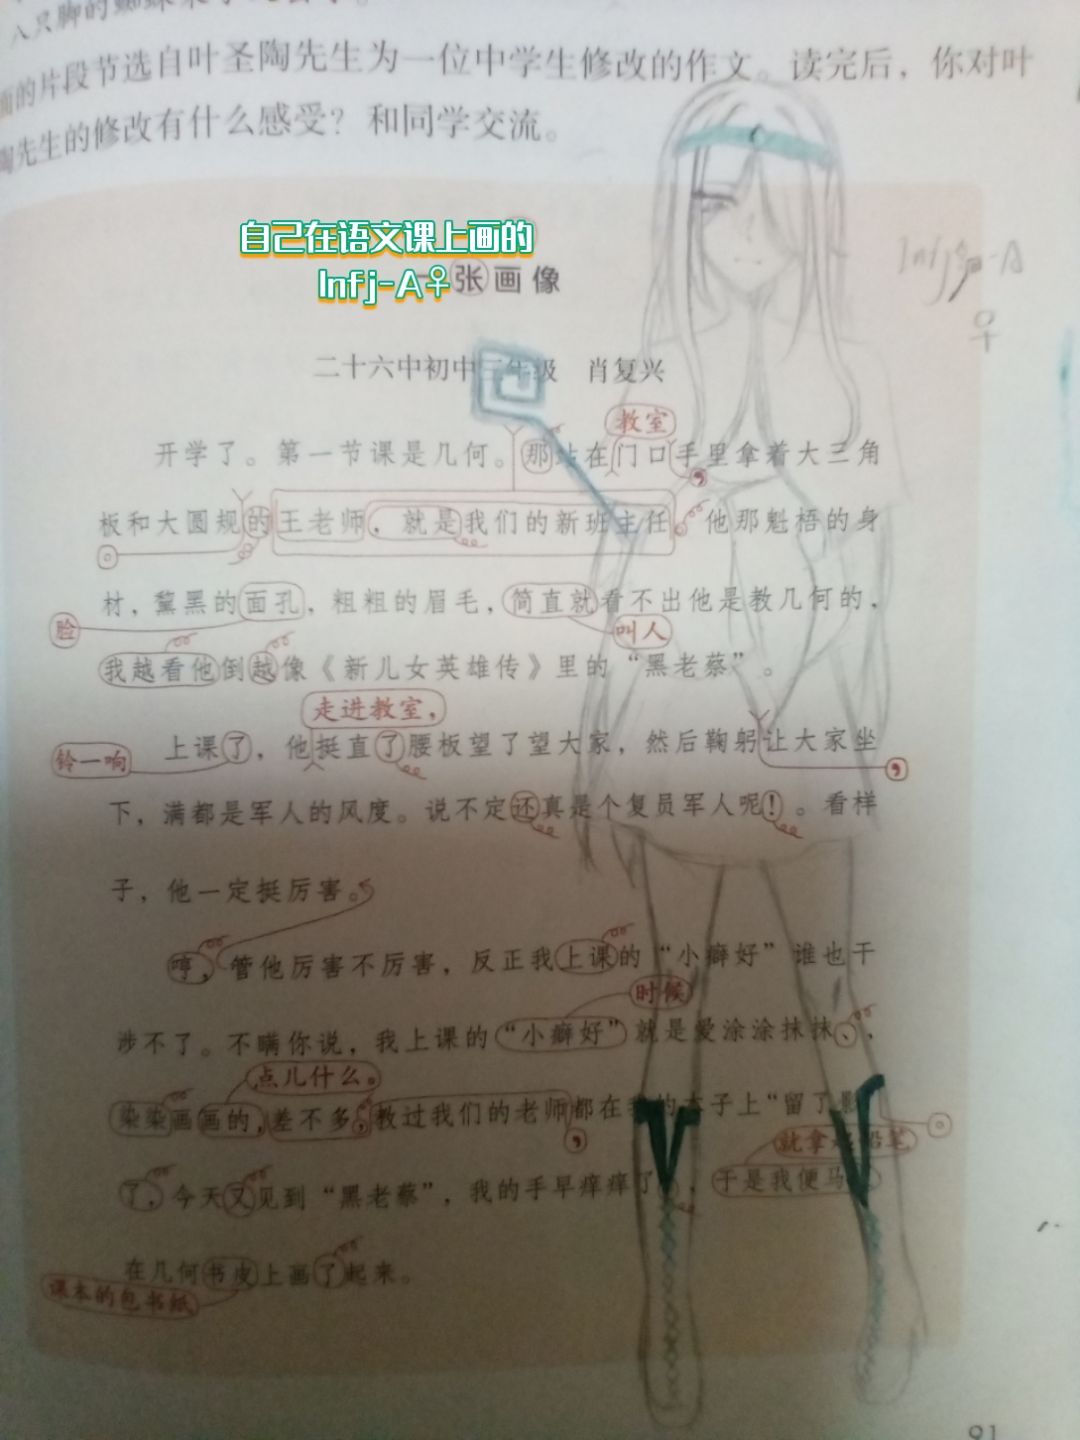 八只脚的蜘蛛
面的片段节选自叶圣陶先生为一位中学生修改的作文。读完后，你对叶
陶先生的修改有什么感受？和同学交流。
自己在语文课上画的
Infj-A♀
一张画像
Infj-A
♀
二十六中初中三年级 肖复兴
教室
开学了。第一节课是几何。那站在门口手里拿着大三角
，
板和大圆规的王老师，就是我们的新班主任。他那魁梧的身
材，黧黑的面孔，粗粗的眉毛，简直就看不出他是教几何的，
脸
叫人
我越看他倒越像《新儿女英雄传》里的“黑老蔡”。
走进教室，
铃一响
上课了，他挺直了腰板望了望大家，然后鞠躬让大家坐
，
下，满都是军人的风度。说不定还真是个复员军人呢！。看样
子，他一定挺厉害。
哼，管他厉害不厉害，反正我上课的“小癖好”谁也干
时候
涉不了。不瞒你说，我上课的“小癖好”就是爱涂涂抹抹、，
点儿什么。
染染画画的，差不多，教过我们的老师都在我的本子上“留了影
，
就拿起铅笔
了，今天又见到“黑老蔡”，我的手早痒痒了，于是我便马
在几何书皮上画了起来。
课本的包书纸
91